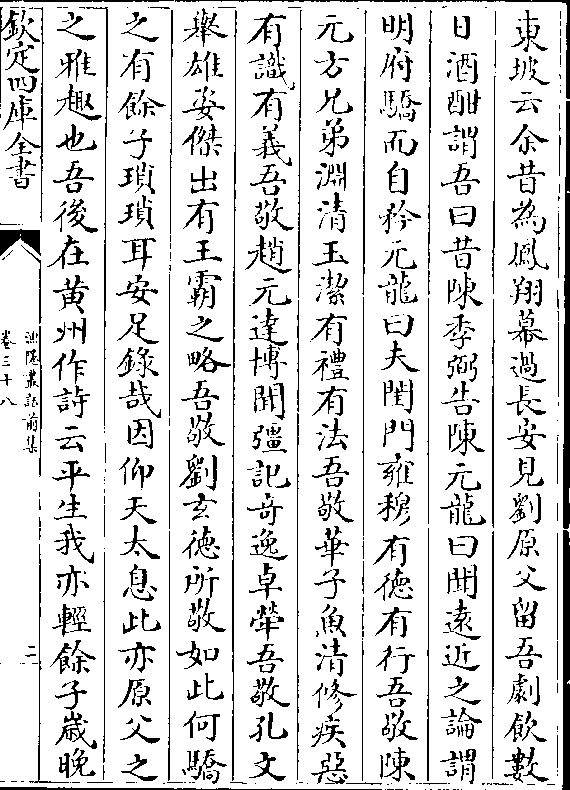 東坡云余昔為鳳翔幕過長安見劉原父留吾劇飲數
日酒酣謂吾曰昔陳季弼告陳元龍曰聞遠近之論謂
明府驕而自矜元龍曰夫閨門雍穆有德有行吾敬陳
元方兄弟淵清玉潔有禮有法吾敬華子魚清修疾惡
有識有義吾敬趙元達博聞彊記奇逸卓犖吾敬孔文
舉雄姿傑出有王霸之略吾敬劉玄德所敬如此何驕
之有餘子瑣瑣耳安足錄哉因仰天太息此亦原父之
之雅趣也吾後在黄州作詩云平生我亦輕餘子嵗晚
欽定四庫全書
漁隠叢話前集
卷三十八
二